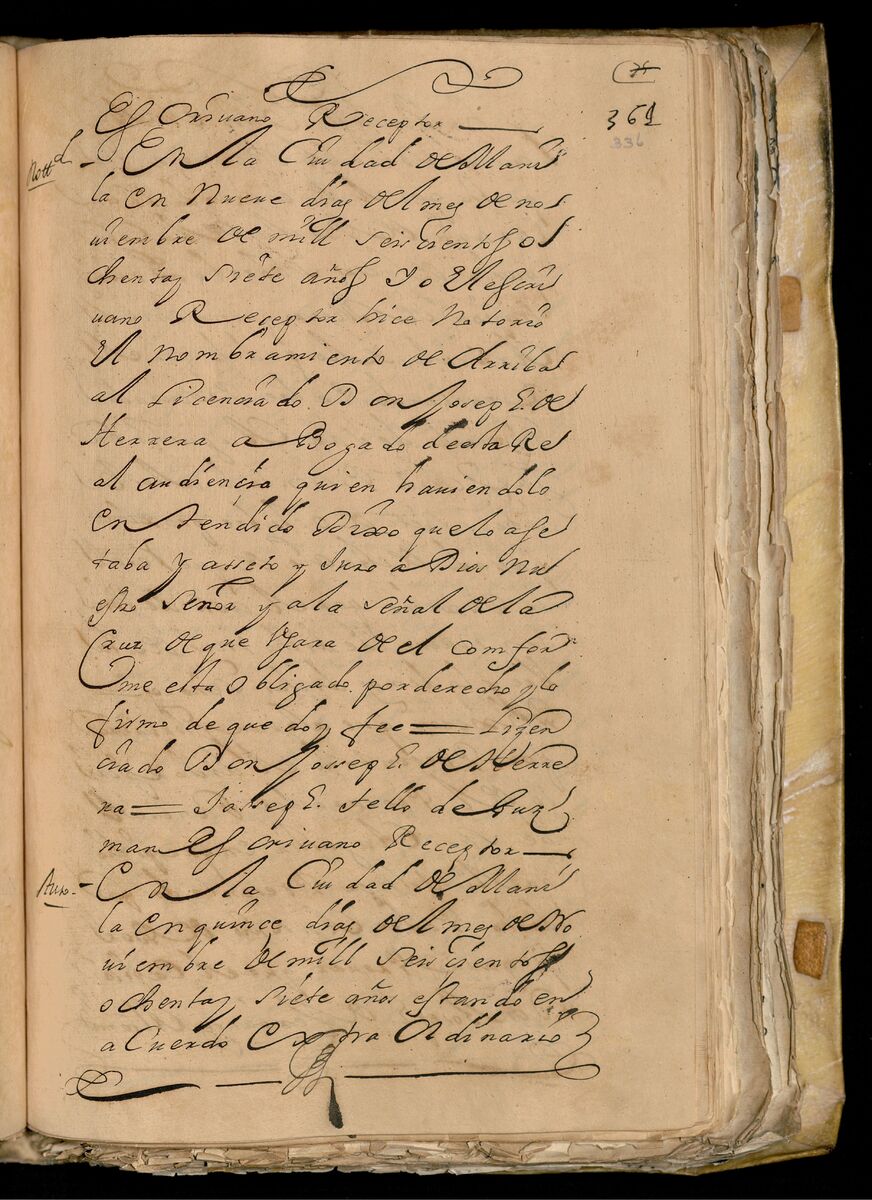 361
336
Escriuano Receptor
Nottd
En la Ciudad de Mani
la en Nueue dias del mes de no
uiembre de mill seiscientos o
chentay siete años Yo el escri
uano Receptor hice Notorio
El nombramiento de arriba
al Licenciado Don Joseph de
Herrera aBogado de esta Re
al audiencia quien hauiendolo
entendido Dixo que lo ase
taba y asseto y Juro a Dios nu
estro señor y a la señal de la
Cruz de que Vsara de el comfor
me esta obligado por derecho y lo
firmo de que doy fee = Lizen
ciado Don Josseph de Herre
ra = Josseph tello de Guz
man Escriuano Receptor
Auto
En la Ciudad de Mani
la en quince dias del mes de No
uiembre de mill seiscientos
ochentay siete años estando en
aCuerdo Extra Ordinario